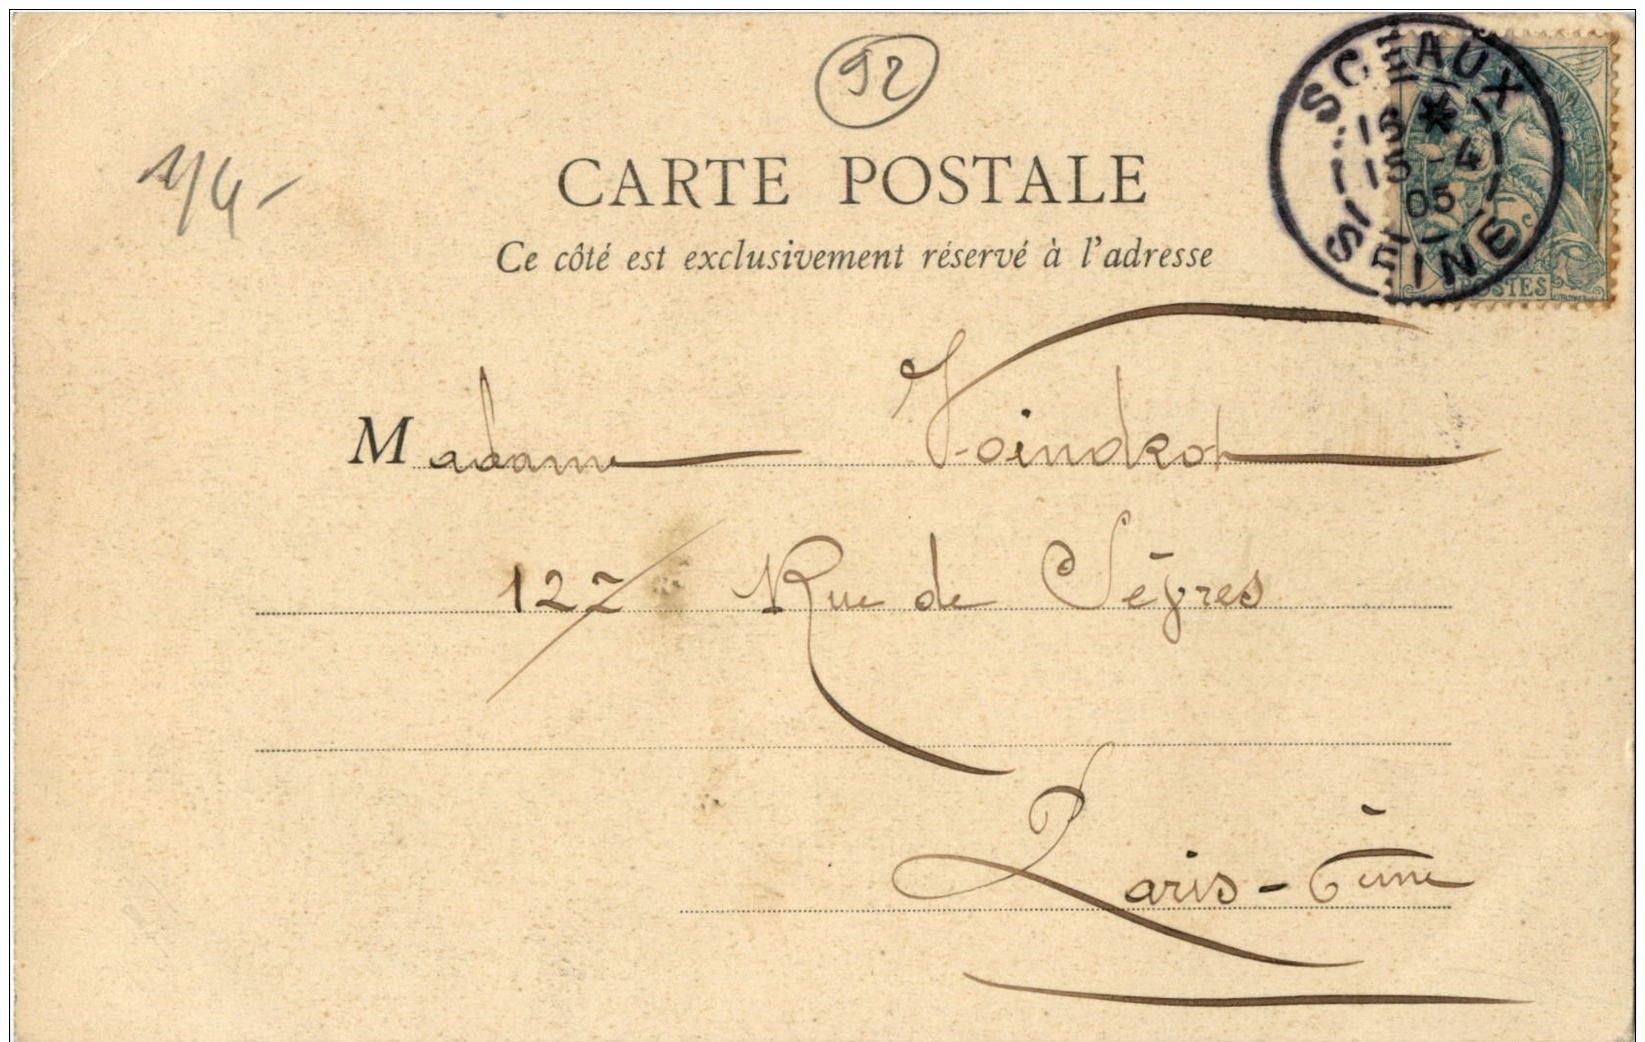 92
CARTE POSTALE
Ce côté est exclusivement réservé à l'adresse
SCEAUX
16 *
15 -4
05
SEINE
POSTES
5c
Madame Voindrot
127 Rue de Sèvres
Paris - 6ème